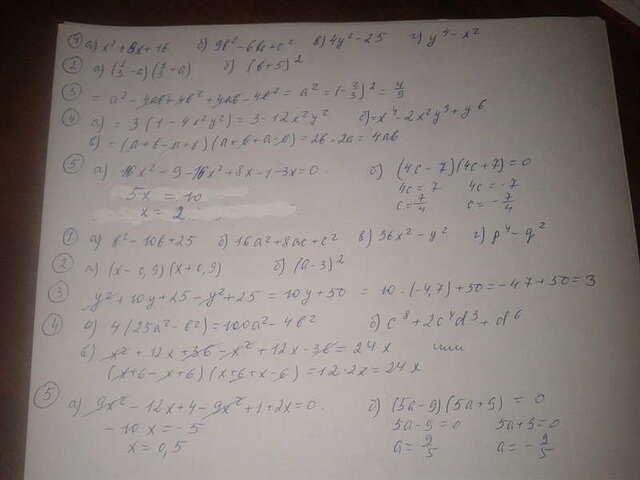 ① а) x² + 8x + 16 б) 9b² - 6bc + c² в) 4y² - 25 г) y⁴ - x²
② а) (1/3 - a)(1/3 + a) б) (b + 5)²
③ = a² - 4ab + 4b² + 4ab - 4b² = a² = (-2/3)² = 4/9
④ а) = 3(1 - 4x²y²) = 3 - 12x²y² б) = x⁴ - 2x²y³ + y⁶
в) = (a + b - a + b)(a + b + a - b) = 2b · 2a = 4ab
⑤ а) 16x² - 9 - 16x² + 8x - 1 - 3x = 0 б) (4c - 7)(4c + 7) = 0
5x = 10 4c = 7 4c = -7
x = 2 c = 7/4 c = -7/4
① а) b² - 10b + 25 б) 16a² + 8ac + c² в) 36x² - y² г) p⁴ - q²
② а) (x - 0,9)(x + 0,9) б) (a - 3)²
③ y² + 10y + 25 - y² + 25 = 10y + 50 = 10 · (-4,7) + 50 = -47 + 50 = 3
④ а) 4(25a² - b²) = 100a² - 4b² б) c⁸ + 2c⁴d³ + d⁶
в) x² + 12x + 36 - x² + 12x - 36 = 24x или
(x + 6 - x + 6)(x + 6 + x - 6) = 12 · 2x = 24x
⑤ а) 9x² - 12x + 4 - 9x² + 1 + 2x = 0. б) (5a - 9)(5a + 9) = 0
-10x = -5 5a - 9 = 0 5a + 9 = 0
x = 0,5 a = 9/5 a = -9/5